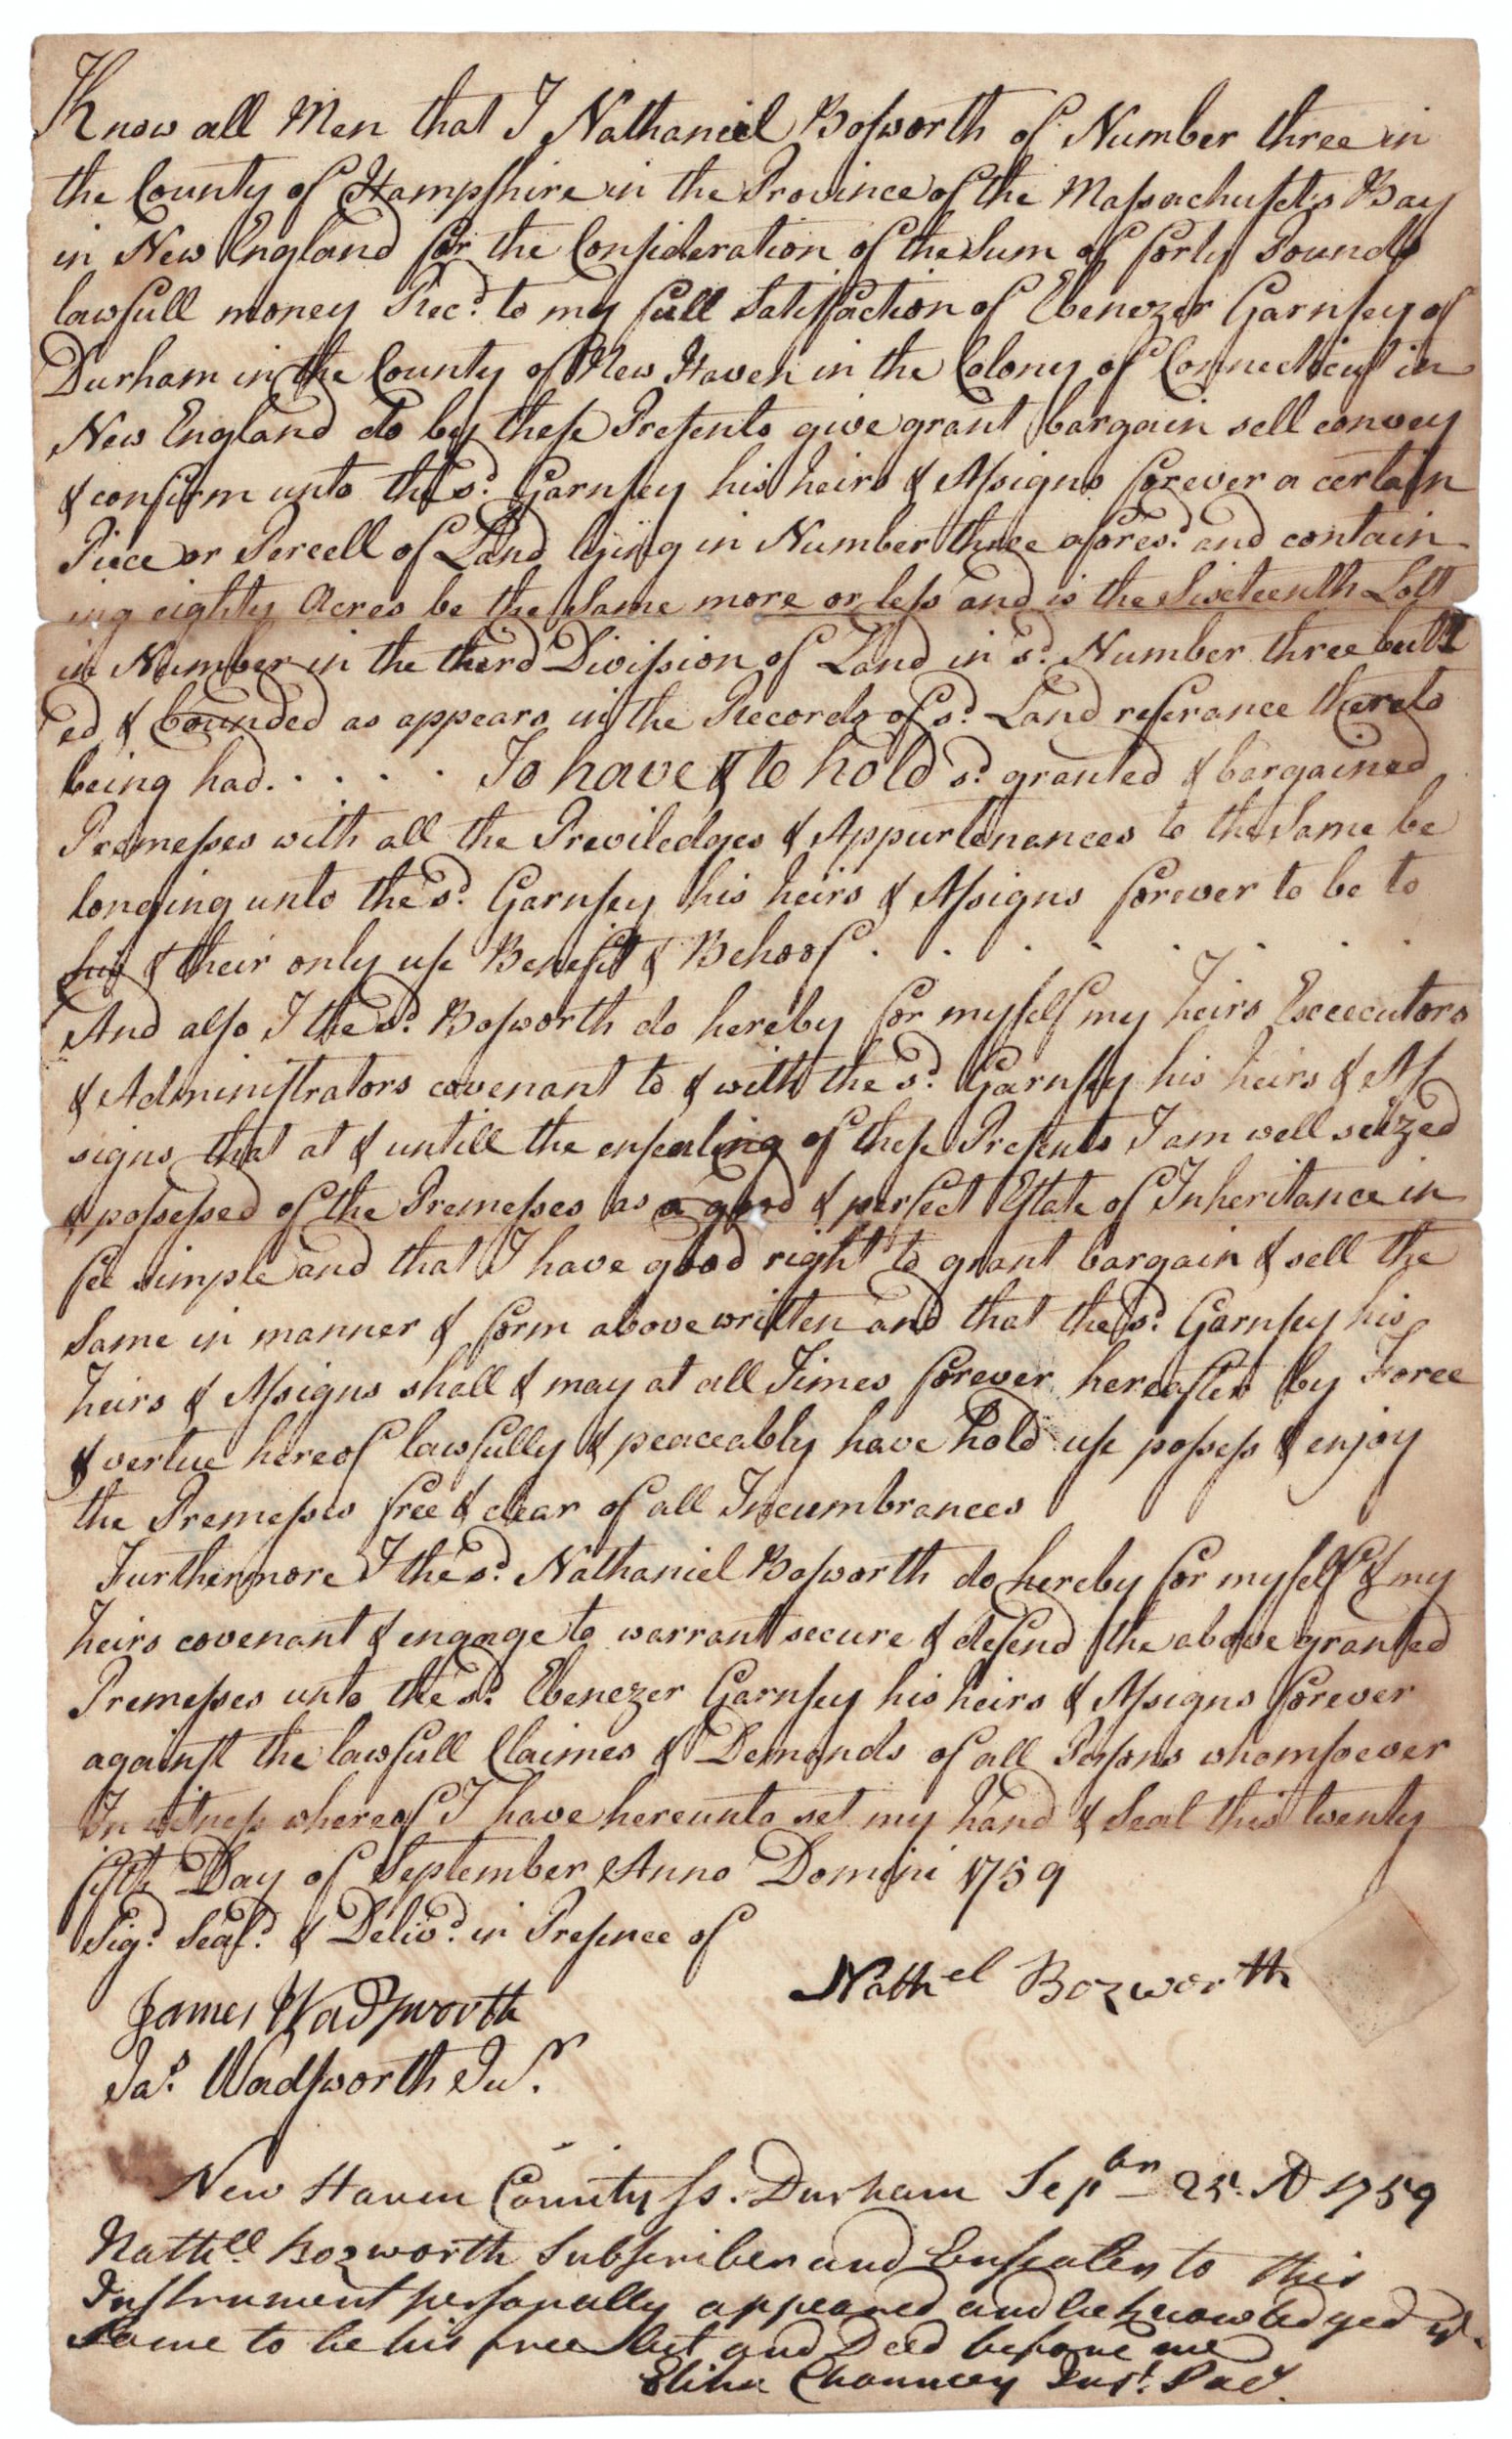 Know all Men that I Nathaniel Bosworth of Number three in
the County of Hampshire in the Province of the Massachusetts Bay
in New England for the Consideration of the Sum of forty Pounds
lawfull money Rec.d to my full Satisfaction of Ebenezer Garnsey of
Durham in the County of New Haven in the Colony of Connecticut in
New England do by these Presents give grant bargain sell convey
& confirm unto the s.d Garnsey his heirs & Assigns forever a certain
Piece or Percell of Land lying in Number three afores.d and contain
ing eighty Acres be the Same more or less and is the Sixteenth Lott
in Number in the third Division of Land in s.d Number three butt
ed & bounded as appears in the Records of s.d Land referance thereto
being had. . . . . To have & to hold s.d granted & bargained
Premesses with all the Previledges & Appurtenances to the Same be
longing unto the s.d Garnsey his heirs & Assigns forever to be to
his & their only use Benefit & Behoof . . . . . . . .
And also I the s.d Bosworth do hereby for myself my heirs Executors
& Administrators covenant to & with the s.d Garnsey his heirs & As
signs that at & untill the ensealing of these Presents I am well seized
& possessed of the Premesses as a good & perfect Estate of Inheritance in
fee simple and that I have good right to grant bargain & sell the
Same in manner & form above written and that the s.d Garnsey his
heirs & Assigns shall & may at all Times forever hereafter by Force
& vertue hereof lawfully & peaceably have hold use possess & enjoy
the Premesses free & clear of all Incumbrances
Furthermore I the s.d Nathaniel Bosworth do hereby for myself & my
heirs covenant & engage to warrant secure & defend the above granted
Premesses unto the s.d Ebenezer Garnsey his heirs & Assigns forever
against the lawfull Claimes & Demands of all Persons whomsoever
In witness whereof I have hereunto set my hand & Seal this twenty
fifth Day of September Anno Domini 1759
Sig.d Seal.d & Deliv.d in Presence of
Nath el Bozworth
James Wadsworth
Ja.s Wadsworth Ju.r
New Haven County Ss. Durham Sepbr 25. AD 1759
Nathll Bozworth Subscriber and Ensealer to this
Instrument personally appeared and acknowledged ye
Same to be his free Act and Deed before me
Elihu Chauncey Just. Pac.